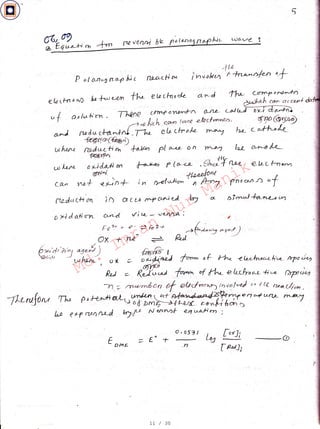 5
@ Equation for reversible polarographic wave :
Polarographic reaction involves the transfer of
electrons between the electrode and the components
of solution. These components are called oxidants
which can accept
and reductants. The electrode may be cathode
which can lose electrons.
where reduction takes place or may be anode
where oxidation takes place. Since free electron
can not exist in solution
therefore
Any process of
reduction is accompanied by a simultaneous
oxidation and vice-versa :
OX + ne⁻ ⇌ Red
where, OX = oxidised form of the electroactive species
Red = Reduced form of the electroactive species
n = number of electrons involved in the reaction.
Therefore The potential, under at standard temperature may
be expressed by Nernst equation :
E DME = E° + 0.0591 / n log [ox]i / [Red]i —①
11 / 35